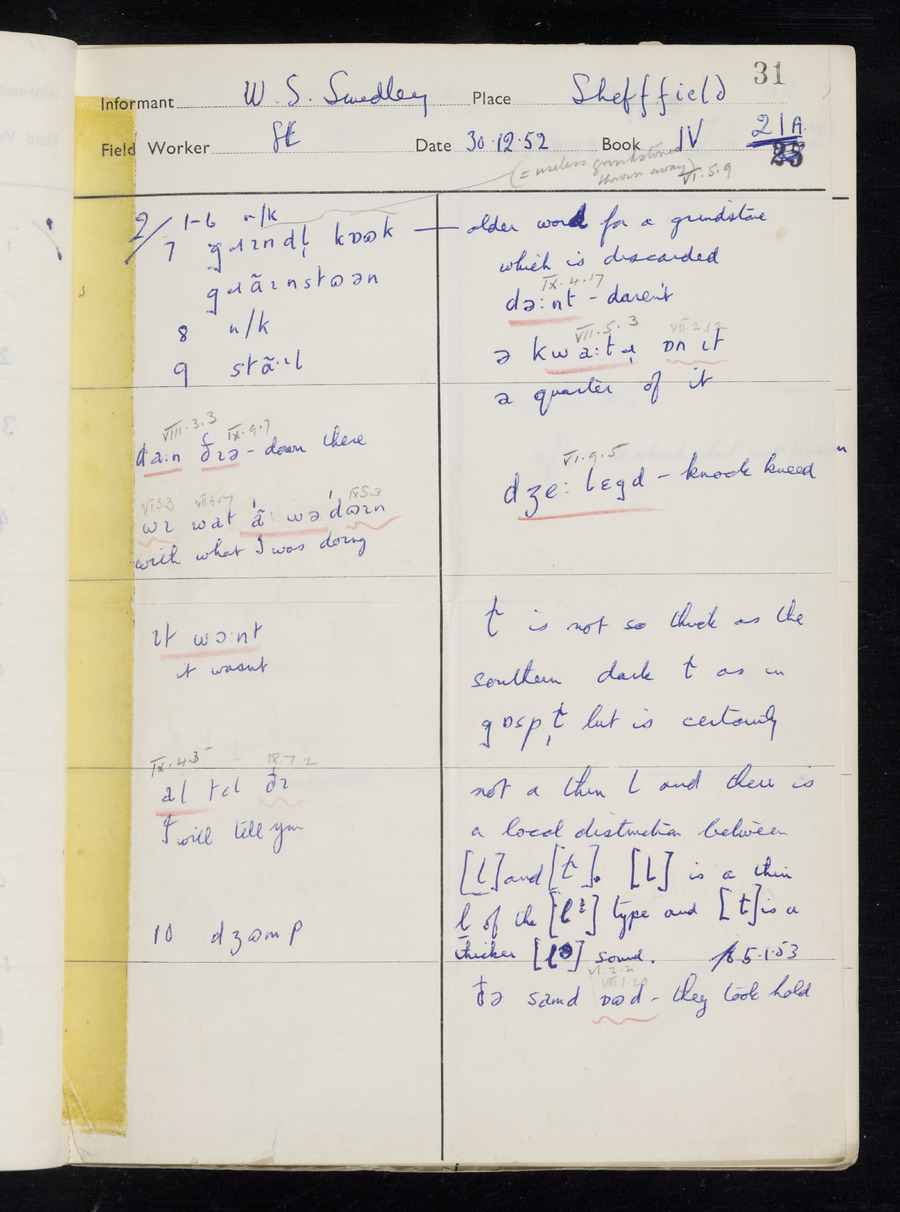 31
Informant W. S. Smedley Place Sheffield
Field Worker Date 30.12.52 Book IV 21A.
(= useless grindstone
thrown away) VI.5.9
2/ 1-6 n/k
7 gɹɪndl̩ kɒɷk
gɹãɪnstɷən
8 n/k
9 stã·ɪl
VIII.3.3 IX.9.7
da:n ðɪə - down there
wɪ wat ã: wə dɷɪn
with what I was doing
ɪt wɔ:nt
it wasnt
IX.4.3 IX.7.2
al tɛl ðɪ
I will tell you
10 dʒɷmp
older word for a grindstone
which is discarded
IX.4.17
də:nt - daren't
VII.5.3 VII.2.12
ə kwa:tɹ ɒn ɪt
a quarter of it
VI.9.5
dʒe: lɛgd - knock kneed
ɫ is not so thick as the
southern dark ɫ as in
gɒspɫ̩ but is certainly
not a thin l and there is
a local distinction between
[l] and [ɫ]. [l] is a thin
l of the [lᶦ] type and [ɫ] is a
thicker [lᵊ] sound. 5.1.53
VI.2.2
VIII.1.20
ðə samd ɒɷd - they took hold